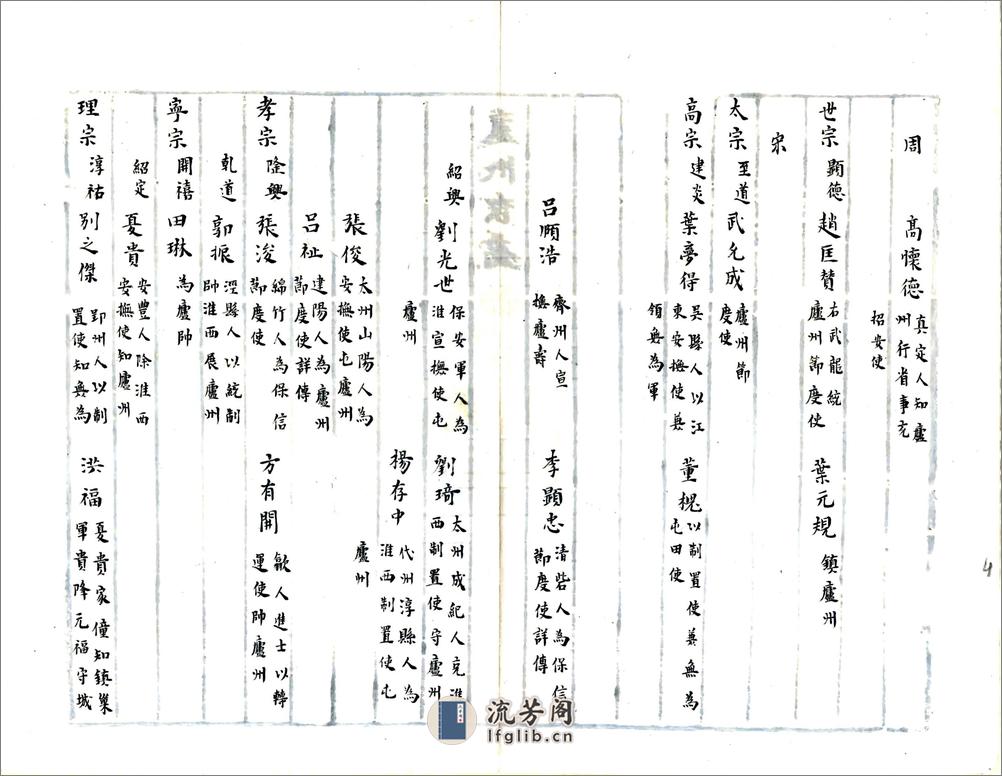 周
高懷德 真定人知廬州行省事充招安使
世宗 顯德 趙匡贊 右武龍統廬州節度使 葉元規 鎮廬州
宋
太宗 至道 武允成 廬州節度使
高宗 建炎 葉夢得 吳縣人以江東安撫使兼領無為軍 董槐 以制置使兼無為屯田使
呂頤浩 齊州人宣撫廬壽 李顯忠 清砦人為保信節度使詳傳
紹興 劉光世 保安軍人為淮宣撫使屯廬州 劉琦 太州成紀人充淮西制置使守廬州
楊存中 代州淳縣人為淮西制置使屯廬州
張俊 太州山陽人為安撫使屯廬州
呂祉 建陽人為廬州節度使詳傳
孝宗 隆興 張浚 綿竹人為保信節度使 方有開 歙人進士以轉運使帥廬州
乾道 郭振 涇縣人以統制帥淮西展廬州
寧宗 開禧 田琳 為廬帥
紹定 夏貴 安豐人除淮西安撫使知廬州
理宗 淳祐 別之傑 郢州人以制置使知無為 洪福 夏貴家僮知鎮巢軍貴降元福守城
4
流芳閣
lfglib.cn